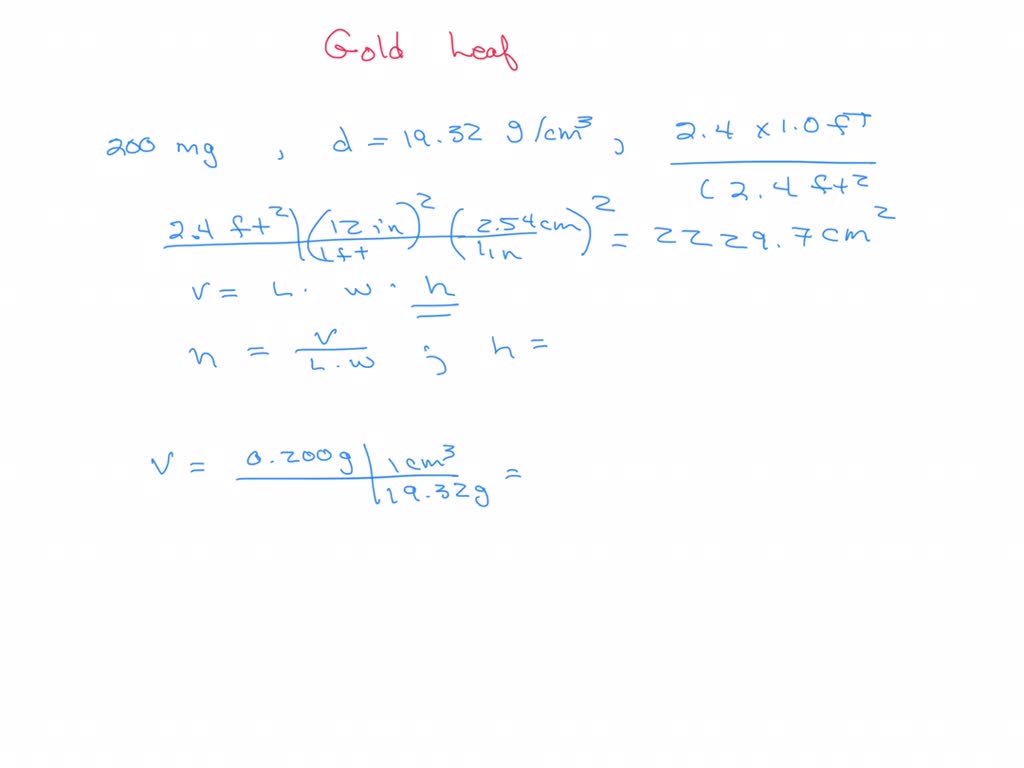 Gold Leaf
200 mg , d = 19.32 g/cm³ ; 2.4 x 1.0 ft
(2.4 ft²
2.4 ft² | (12 in / 1 ft)² (2.54 cm / 1 in)² = 2229.7 cm²
V = L · w · h
h = V / L · w ; h =
V = 0.200 g | 1 cm³ / 19.32 g =